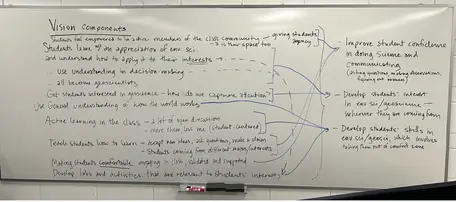 Vision Components
Students feel empowered to be active members of the class community → giving students agency
→ is their space too
Students learn of the appreciation of env sci
and understand how to apply it to their interests
... use understanding in decision making
... all become geoscientists
Get students interested in geoscience - how do we capture attention?
Use general understanding of how the world works
Active learning in the class → a lot of open discussion
→ more them less me (student-centered)
Teach students how to learn → accept new ideas, ask questions, make a claim
Students coming from different majors/interests
Making students comfortable engaging in class, validated and supported
Develop labs and activities that are relevant to students' interests
- Improve student confidence
in doing science and
communicating
(asking questions, making observations,
- Develop students' interest
in env sci/geoscience —
wherever they are coming from
- Develop students' skills in
env sci/geosci, which involves
taking them out of comfort zone